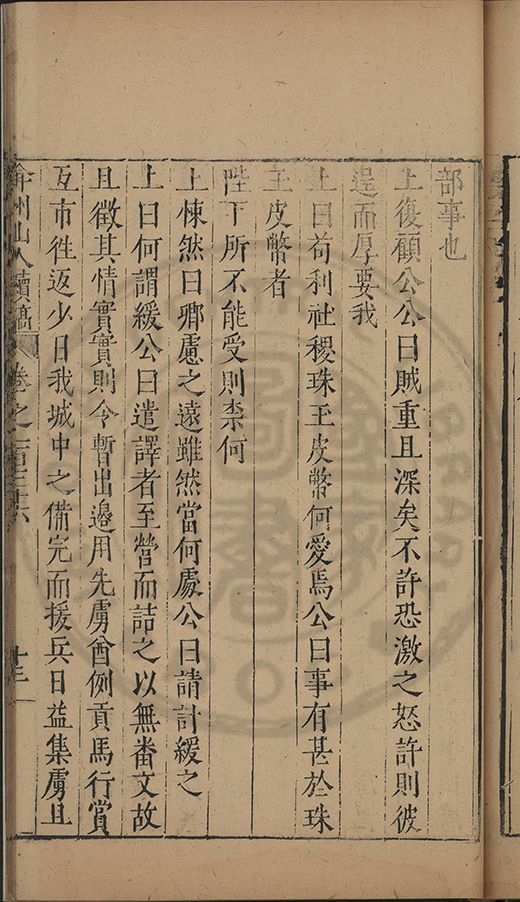 部事也
上復顧公公曰賊重且深矣不許恐激之怒許則彼
逞而厚要我
上曰苟利社稷珠玉皮幣何愛焉公曰事有甚於珠
玉皮幣者
陛下所不能受則柰何
上悚然曰卿慮之遠雖然當何處公曰請計緩之
上曰何謂緩公曰遣譯者至營而詰之以無番文故
且徵其情實實則令暫出邊用先虜酋例貢馬行賞
互市徃返少日我城中之備完而援兵日益集虜且
弇州山人續稿 卷之一百三十六
十三